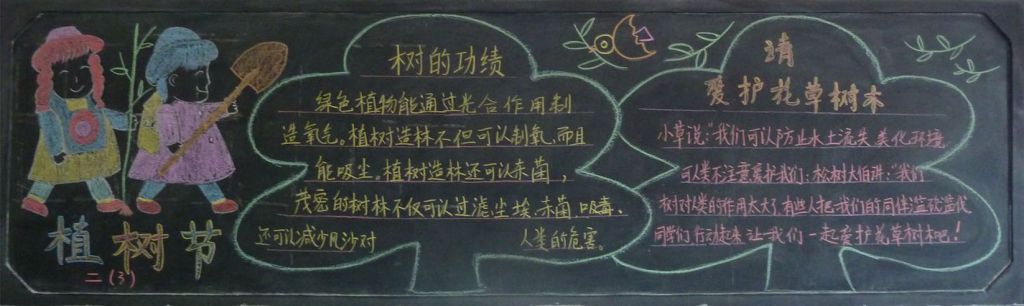 植树节
二(3)
树的功绩
绿色植物能通过光合作用制
造氧气。植树造林不但可以制氧,而且
能吸尘。植树造林还可以杀菌,
茂密的树林不仅可以过滤尘埃、杀菌、吸毒、
还可以减少风沙对 人类的危害。
请
爱护花草树木
小草说:“我们可以防止水土流失、美化环境
可人类不注意爱护我们;松树大伯讲:“我们
树对人类的作用太大了,有些人把我们的同伴滥砍滥伐
同学们行动起来让我们一起爱护花草树木吧!